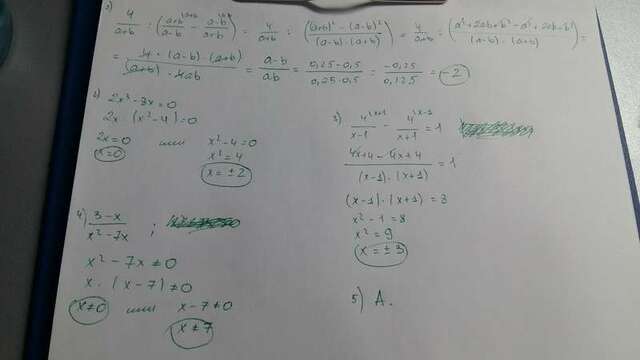 4/(a+b) : ((a+b)/(a-b) - (a-b)/(a+b)) = 4/(a+b) : (((a+b)² - (a-b)²)/((a-b)·(a+b))) = 4/(a+b) : ((a²+2ab+b²-a²+2ab-b²)/((a-b)·(a+b))) =
= (4·(a-b)·(a+b))/((a+b)·4ab) = (a-b)/(ab) = (0,25-0,5)/(0,25·0,5) = (-0,25)/(0,125) = -2
2x³-8x=0
2x·(x²-4)=0
2x=0 или x²-4=0
x=0 x²=4
x=±2
3) 4/(x-1) - 4/(x+1) = 1
(4x+4-4x+4)/((x-1)·(x+1)) = 1
(x-1)·(x+1)=8
x²-1=8
x²=9
x=±3
4) (3-x)/(x²-7x) ;
x²-7x≠0
x·(x-7)≠0
x≠0 или x-7≠0
x≠7
5) A.